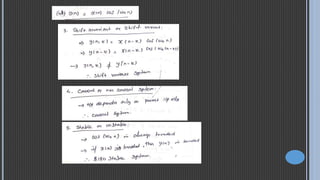 y(n) = x(n) cos (ω₀n)
3. Shift invariant or Shift variant:
⇒ y(n,k) = x(n-k) cos (ω₀n)
⇒ y(n-k) = x(n-k) cos (ω₀(n-k))
→ y(n,k) ≠ y(n-k)
∴ Shift variant system
4. Causal or non causal system:
→ o/p depends only on present i/p only
∴ causal system.
5. Stable or unstable:
→ cos (ω₀n) is always bounded
→ if x(n) is bounded, then y(n) is bounded
∴ BIBO stable system.